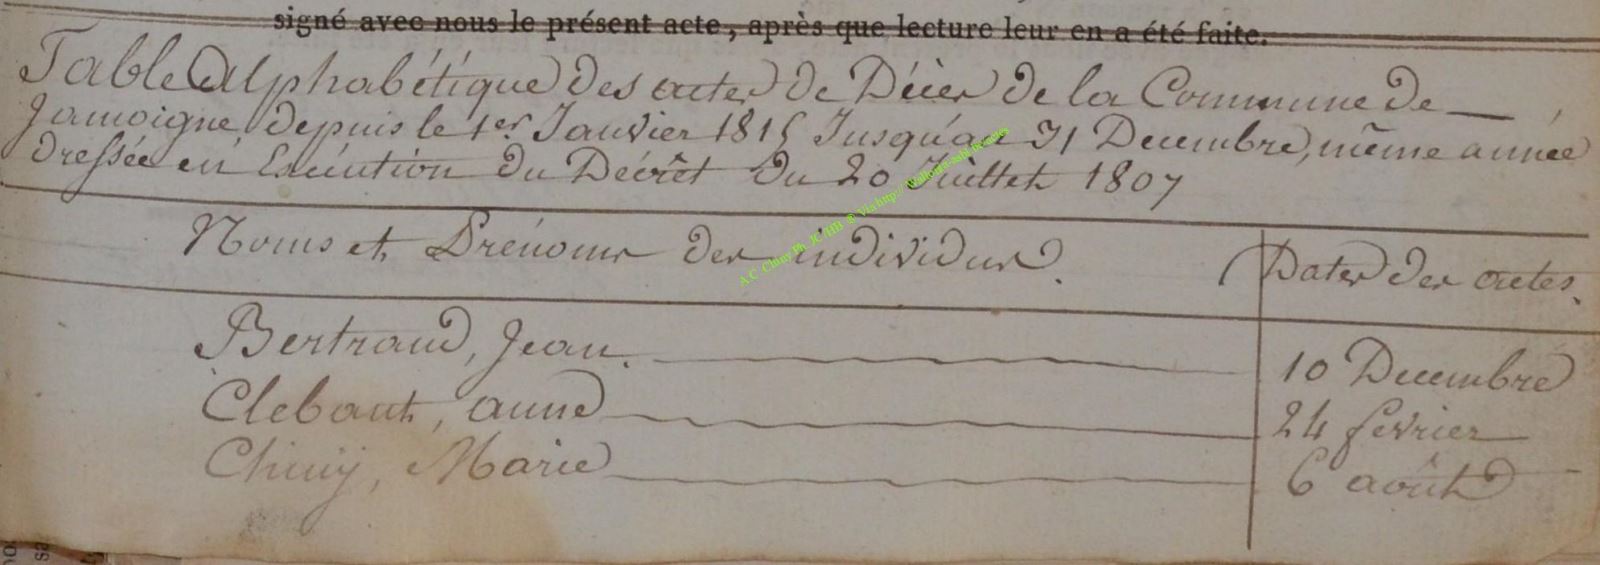 signé avec nous le présent acte, après que lecture leur en a été faite.
Table Alphabétique des actes de Décès de la Commune de
Jamoigne depuis le 1er Janvier 1815 Jusqu'au 31 Decembre, même année
dressée en Exécution du Décrêt du 20 Juillet 1807
Noms et Prénoms des individus. Dates des actes.
Bertrand, Jean. 10 Decembre
Clebant, anne 24 fevrier
Chiny, Marie 6 août